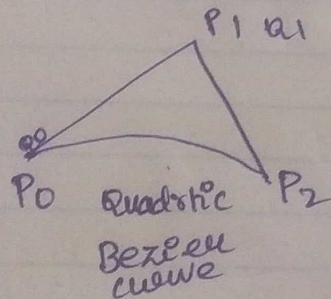 P1 Q1
Q0
P0
P2
Quadrtic
Bezieu
curve